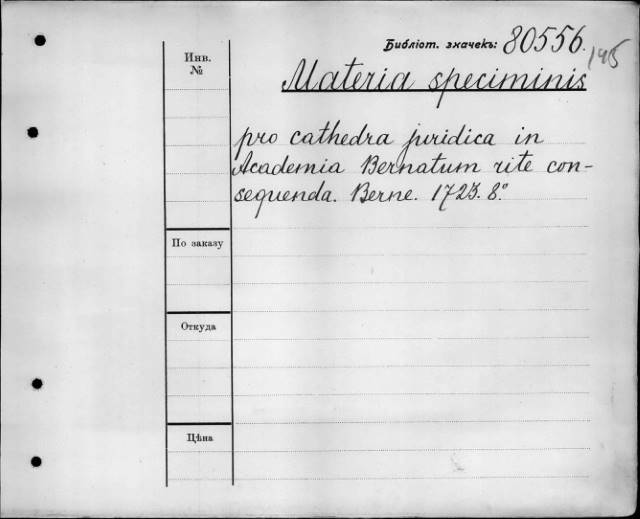 Библіот. значекъ: 80556.
195
Инв.
№
Materia speciminis
pro cathedra juridica in
Academia Bernatum rite con-
sequenda. Berne. 1723. 8.°
По заказу
Откуда
Цѣна